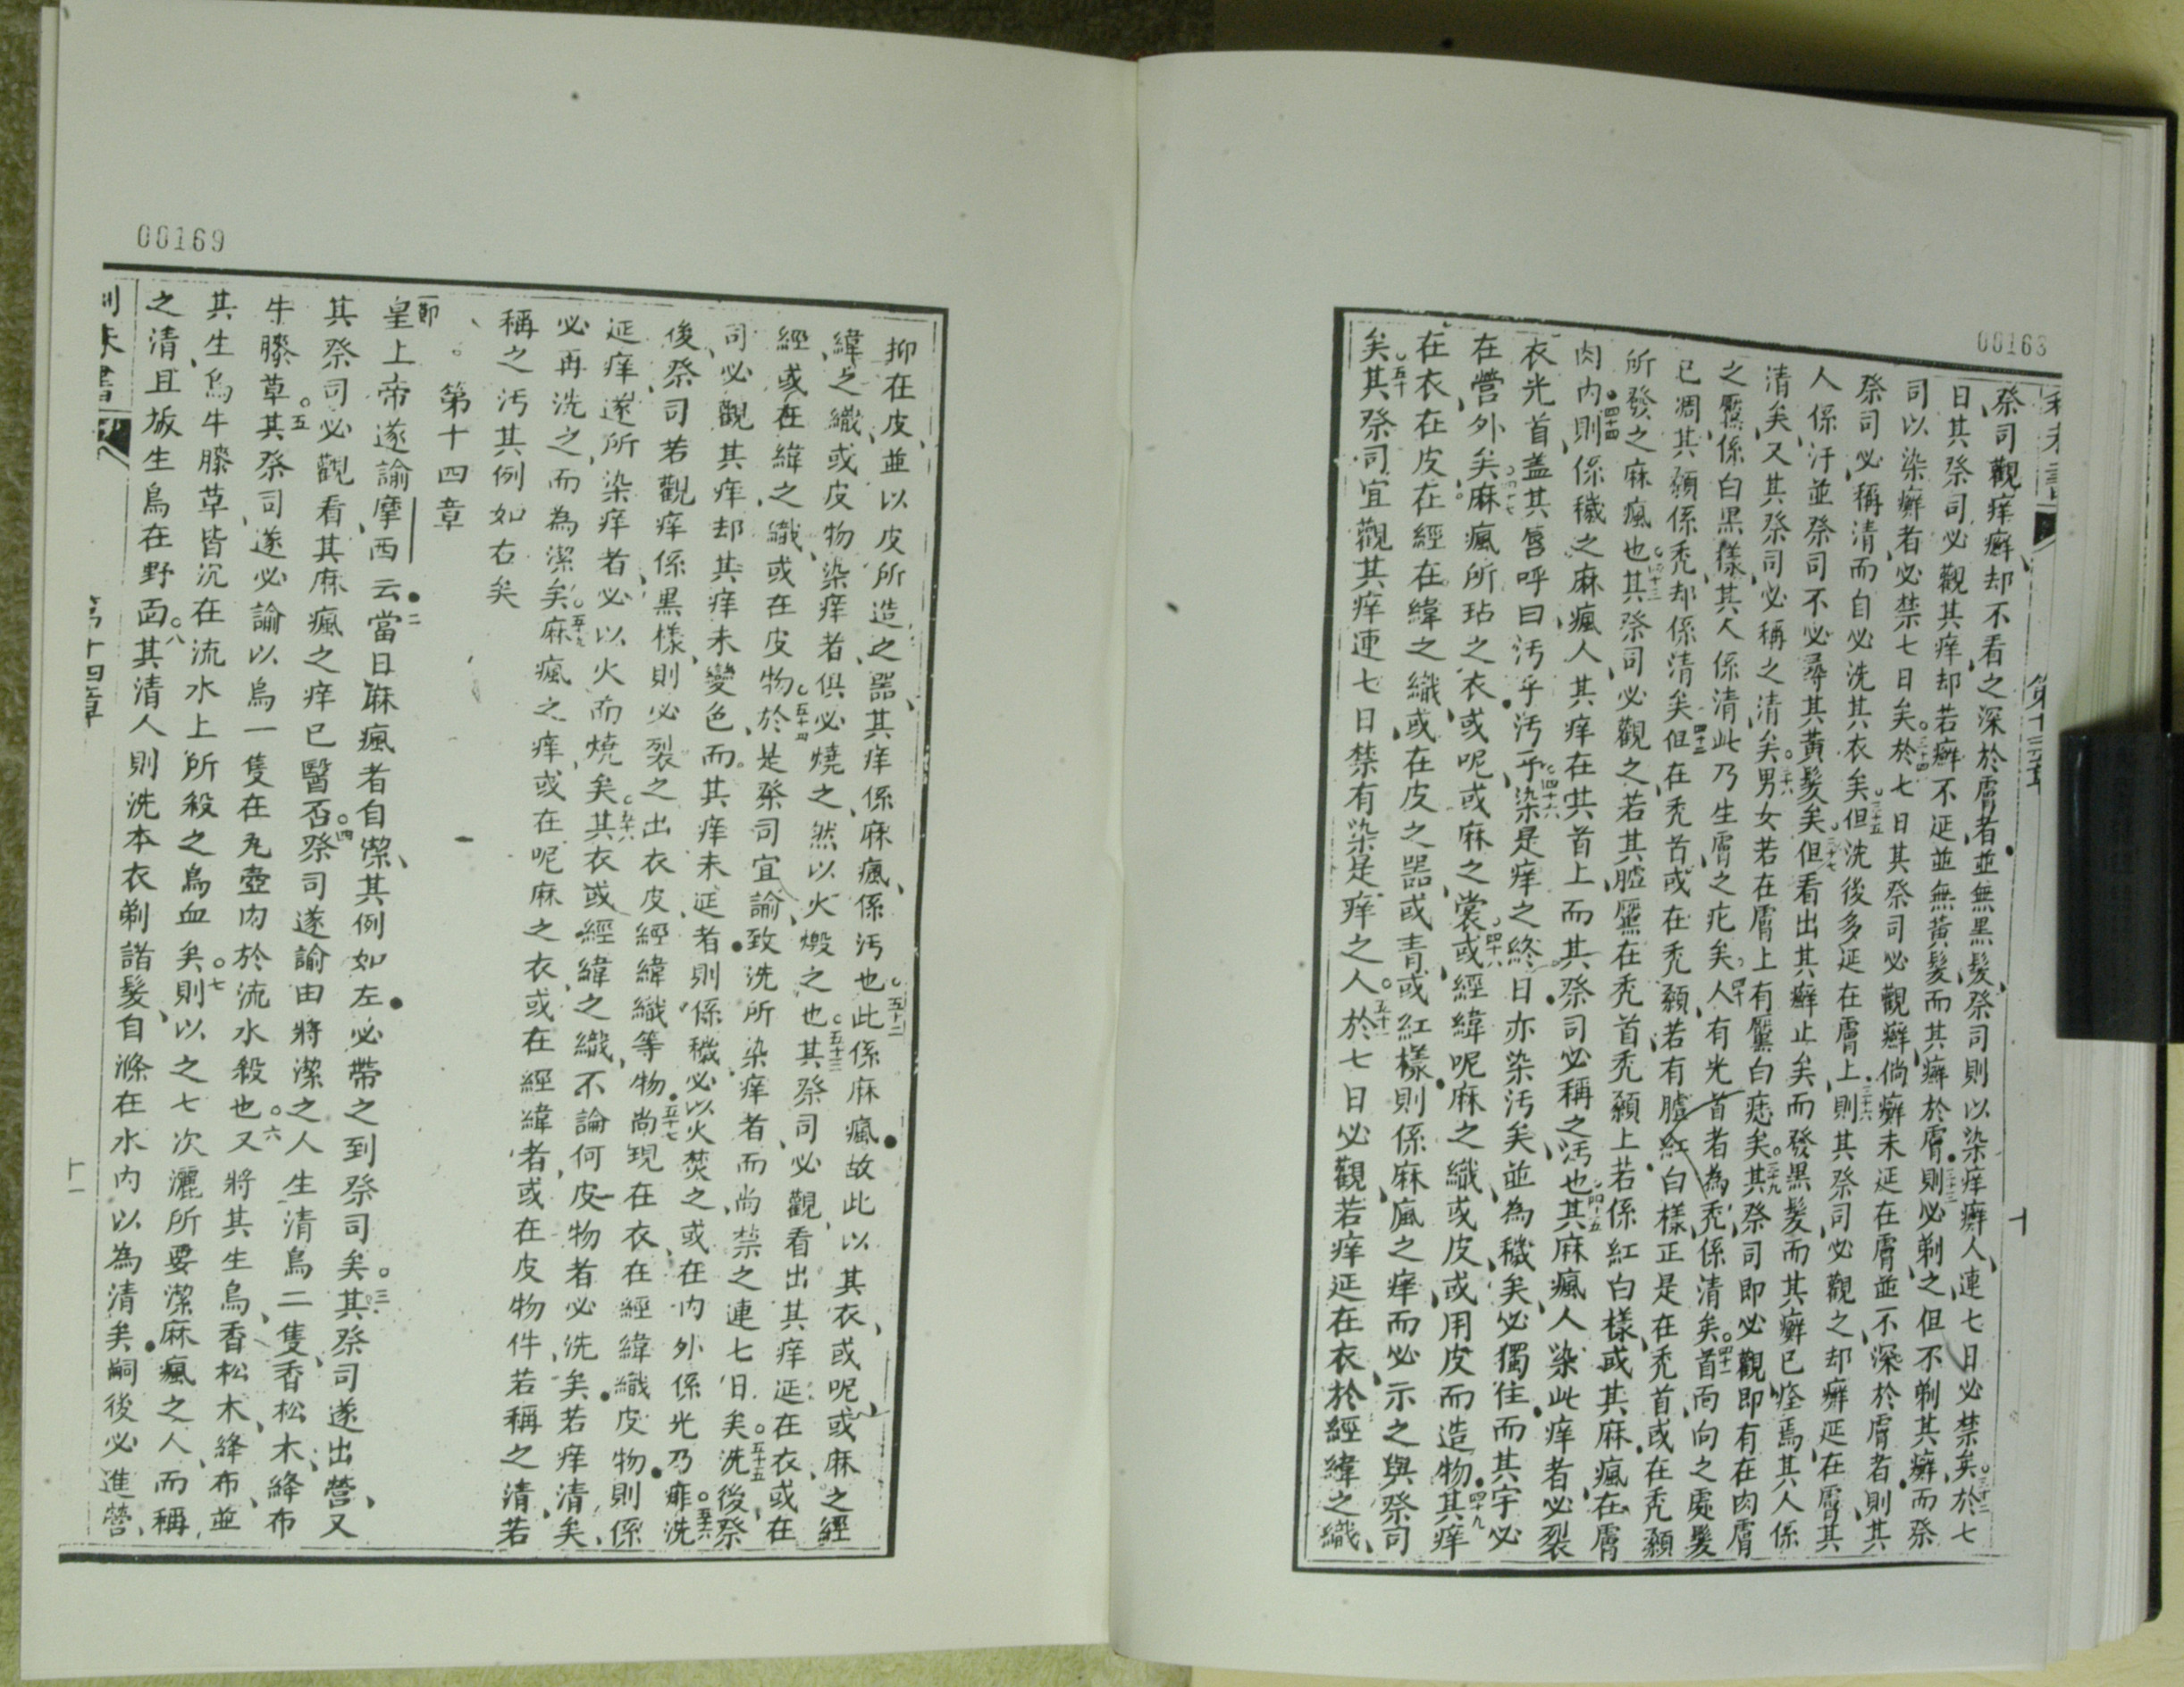 00168
第十三章
十
祭司觀痒癬却不看之深於膚者並無黑髮祭司則以染痒癬人連七日必禁矣三十二於七
日其祭司必觀其痒却若癬不延並無黃髮而其癬於膚三十三則必剃之但不剃其癬而祭
司以染癬者必禁七日矣三十四於七日其祭司必觀癬倘癬未延在膚並不深於膚者則其
祭司必稱清而自必洗其衣矣三十五但洗後多延在膚上三十六則其祭司必觀之却癬延在膚其
人係汙並祭司不必尋其黃髮矣三十七但看出其癬止矣而發黑髮而其癬已痊焉其人係
清矣又其祭司必稱之清矣三十八男女若在膚上有黶白痣矣三十九其祭司即必觀即有在肉膚
之黶係白黑樣其人係清此乃生膚之疕矣四十人有光首者為禿係清矣四十一首面向之處髮
已凋其額係禿却係清矣四十二但在禿首或在禿額若有臚紅白樣正是在禿首或在禿額
所發之麻瘋也四十三其祭司必觀之若其臚黶在禿首禿額上若係紅白樣或其麻瘋在膚
肉內四十四則係穢之麻瘋人其痒在其首上而其祭司必稱之汚也四十五其麻瘋人染此痒者必裂
衣光首蓋其唇呼曰汚乎汚乎四十六染是痒之終日亦染汚矣並為穢矣必獨住而其宇必
在營外矣四十七麻瘋所玷之衣或呢或麻之裳四十八或經緯呢麻之織或皮或用皮而造物四十九其痒
在衣在皮在經在緯之織或在皮之器或青或紅樣則係麻瘋之痒而必示之與祭司
矣五十其祭司宜觀其痒連七日禁有染是痒之人五十一於七日必觀若痒延在衣於經緯之織
00169
抑在皮並以皮所造之器其痒係麻瘋係汚也五十二此係麻瘋故此以其衣或呢或麻之經
緯之織或皮物染痒者俱必燒之然以火燬之也五十三其祭司必觀看出其痒延在衣或在
經或在緯之織或在皮物五十四於是祭司宜諭致洗所染痒者而尚禁之連七日矣五十五洗後祭
司必觀其痒却其痒未變色而其痒未延者則係穢必以火焚之或在內外係光乃痱五十六洗
後祭司若觀痒係黑樣則必裂之出衣皮經緯織等物五十七尚現在衣在經緯織皮物則係
延痒遂所染痒者必以火而燒矣五十八其衣或經緯之織不論何皮物者必洗矣若痒清矣
必再洗之而為潔矣五十九麻瘋之痒或在呢麻之衣或在經緯者或在皮物件若稱之清若
稱之汚其例如右矣
第十四章
一節皇上帝遂諭摩西云二當日麻瘋者自潔其例如左必帶之到祭司矣三其祭司遂出營又
其祭司必觀看其麻瘋之痒已醫否四祭司遂諭由將潔之人生清鳥二隻香松木絳布
牛膝草五其祭司遂必諭以鳥一隻在瓦壺內於流水殺也六又將其生鳥香松木絳布並
其生鳥牛膝草皆沉在流水上所殺之鳥血矣七則以之七次灑所要潔麻瘋之人而稱
之清且放生鳥在野面八其清人則洗本衣剃諸髮自滌在水內以為清矣嗣後必進營
第十四章
十一